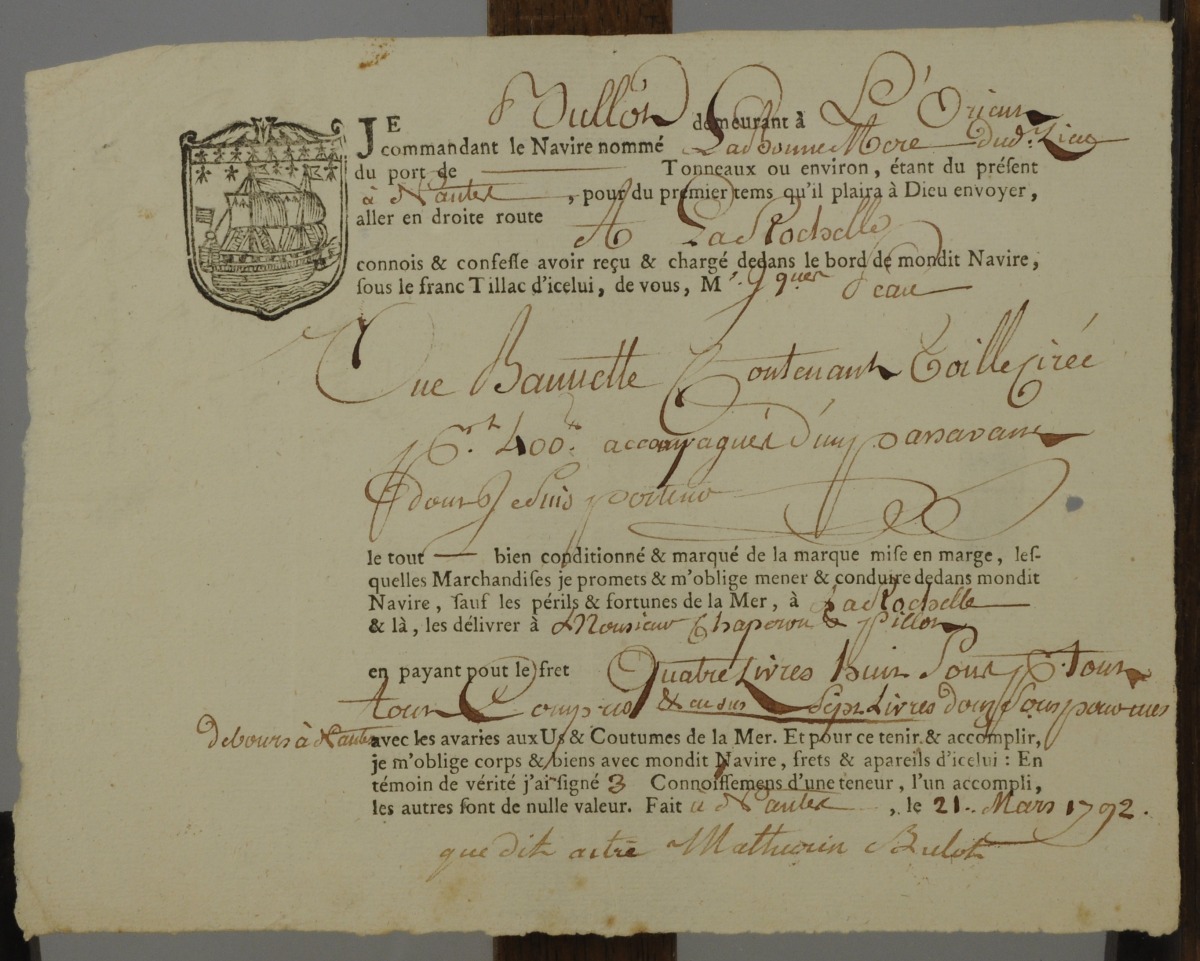 JE Bullot demeurant à L'Orient
commandant le Navire nommé La Bonne Mere dud. Lieu
du port de Tonneaux ou environ, étant du préſent
à Nantes, pour du premier tems qu'il plaira à Dieu envoyer,
aller en droite route A La Rochelle
connois & confeſſe avoir reçu & chargé dedans le bord de mondit Navire,
ſous le franc Tillac d'icelui, de vous, M
Une Bannette Contenant Toille Cirée
400 accompagnés d'un passavant
dont Je suis porteur
le tout bien conditionné & marqué de la marque miſe en marge, leſ-
quelles Marchandiſes je promets & m'oblige mener & conduire dedans mondit
Navire, ſauf les périls & fortunes de la Mer, à La Rochelle
& là, les délivrer à Monsieur Chaperon & Pillot
en payant pout le fret Quatre Livres huit Sous pr. tout
tout Compris & en sus Sept Livres douze Sous pour mes
debours à Nantes avec les avaries aux Us & Coutumes de la Mer. Et pour ce tenir & accomplir,
je m'oblige corps & biens avec mondit Navire, frets & apareils d'icelui : En
témoin de vérité j'ai ſigné 3 Connoiſſemens d'une teneur, l'un accompli,
les autres ſont de nulle valeur. Fait à Nantes, le 21. Mars 1792.
que dit autre Mathurin Bulot